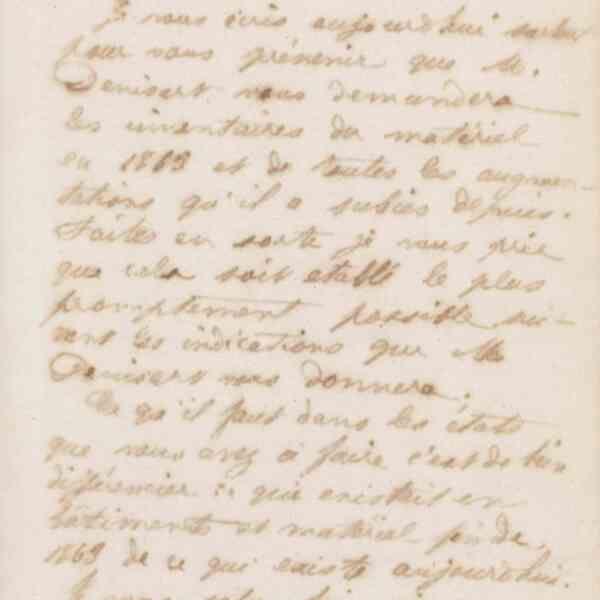 Je vous écris aujourd'hui surtout
pour vous prévenir que M.
Denisart vous demandera
les inventaires du matériel
en 1863 et de toutes les augmen-
tations qu'il a subies depuis.
Faites en sorte je vous prie
que cela soit établi le plus
promptement possible sui-
vant les indications que M.
Denisart vous donnera.
Ce qu'il faut dans les états
que vous avez à faire c'est de bien
différencier ce qui existait en
bâtiments et matériel fin de
1863 de ce qui existe aujourd'hui.
Je vous